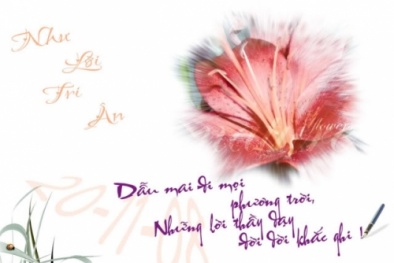 Như
Lời
Tri
Ân
Dẫu mai đi mọi
phương trời,
Những lời thầy dạy
đời đời khắc ghi !
20-11-08